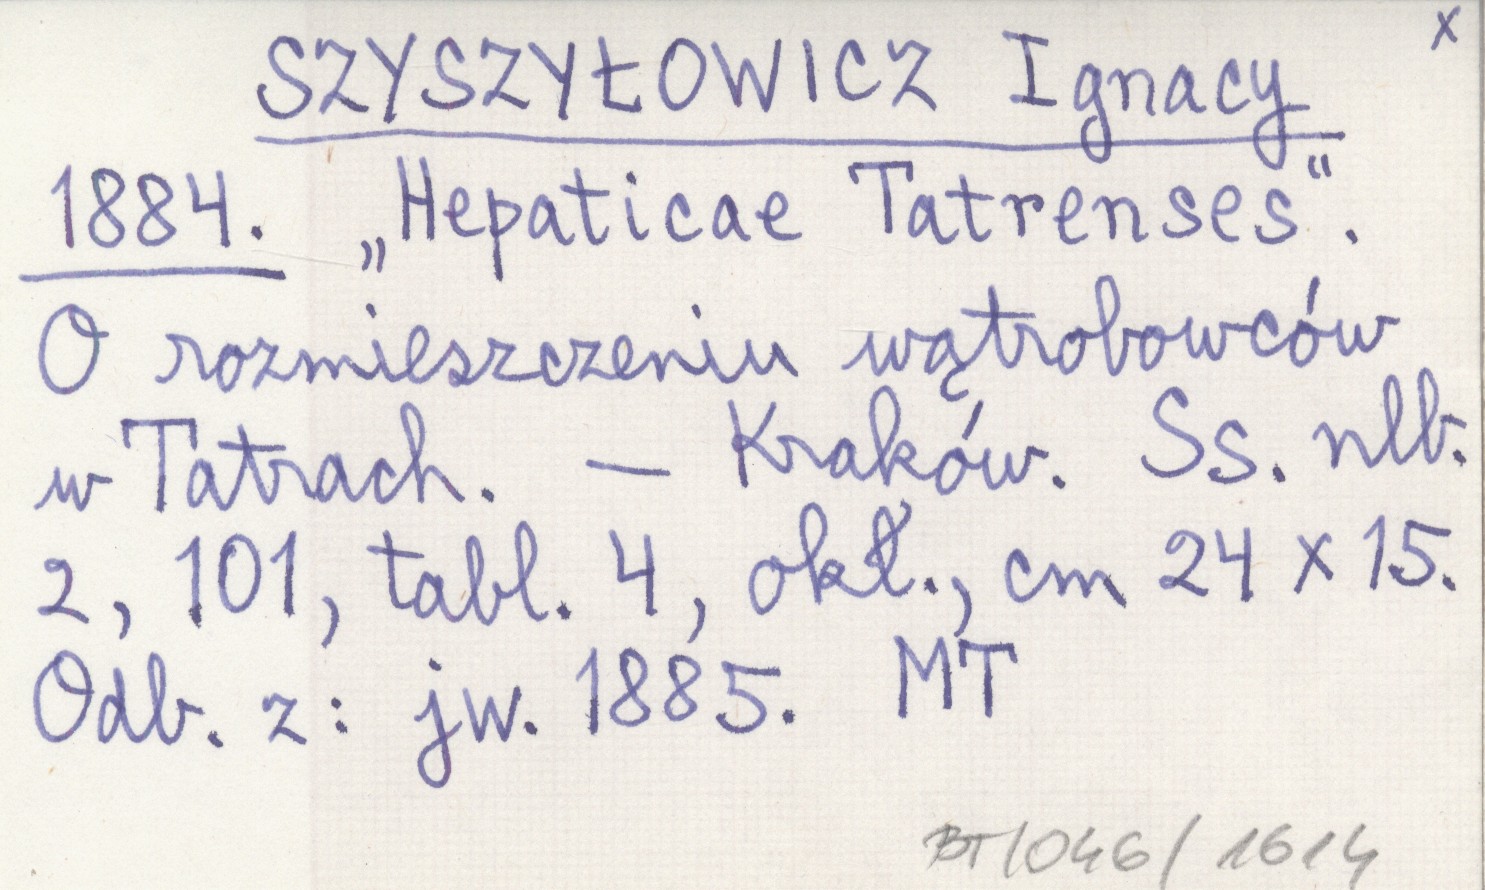 x
SZYSZYŁOWICZ Ignacy
1884. „Hepaticae Tatrenses“.
O rozmieszczeniu wątrobowców
w Tatrach. — Kraków. Ss. nlb.
2, 101, tabl. 4, okł., cm 24 x 15.
Odb. z: jw. 1885. MT
BT/046/1614